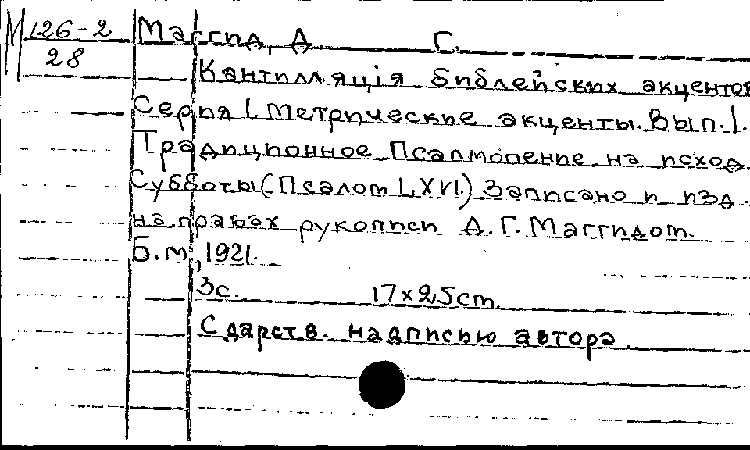 М 126-2 Маггид, Д. Г.
28
Кантилляція библейских акцентов
Серия I. Метрические акценты. Вып. I.
Традиционное Псалмопение на исход
Субботы (Псалом LXVI) Записано и изд.
на правах рукописи Д. Г. Маггидом.
Б.м., 1921.
3с. 17x25cm.
С дарств. надписью автора.